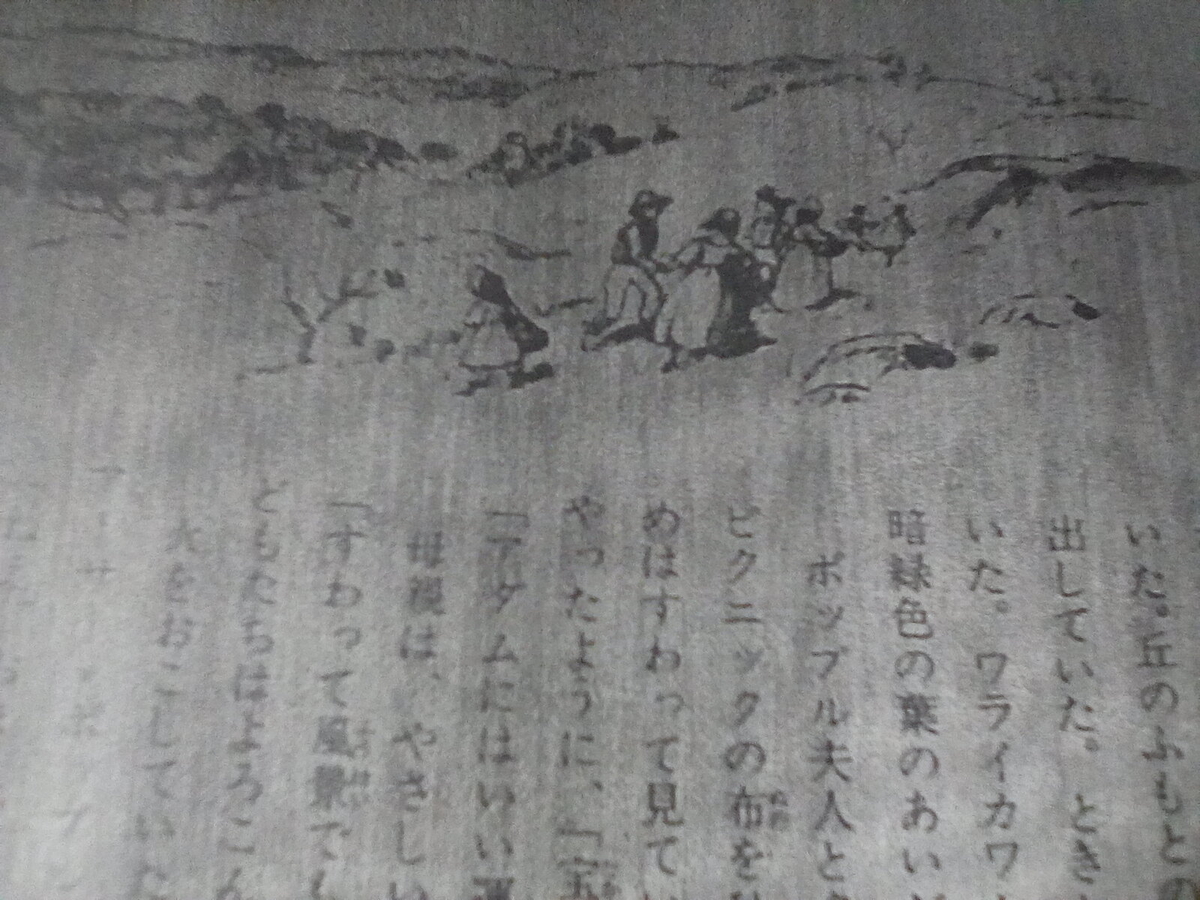 いた。丘のふもとの
出していた。とき
いた。ワライカワ
暗緑色の葉のあい
ポップル夫人と
ピクニックの布を
めはすわって見て
やったように、「
「アダムにはいい運
母親は、やさしい
「すわって風景で
どもたちはよろこん
火をおこしていた